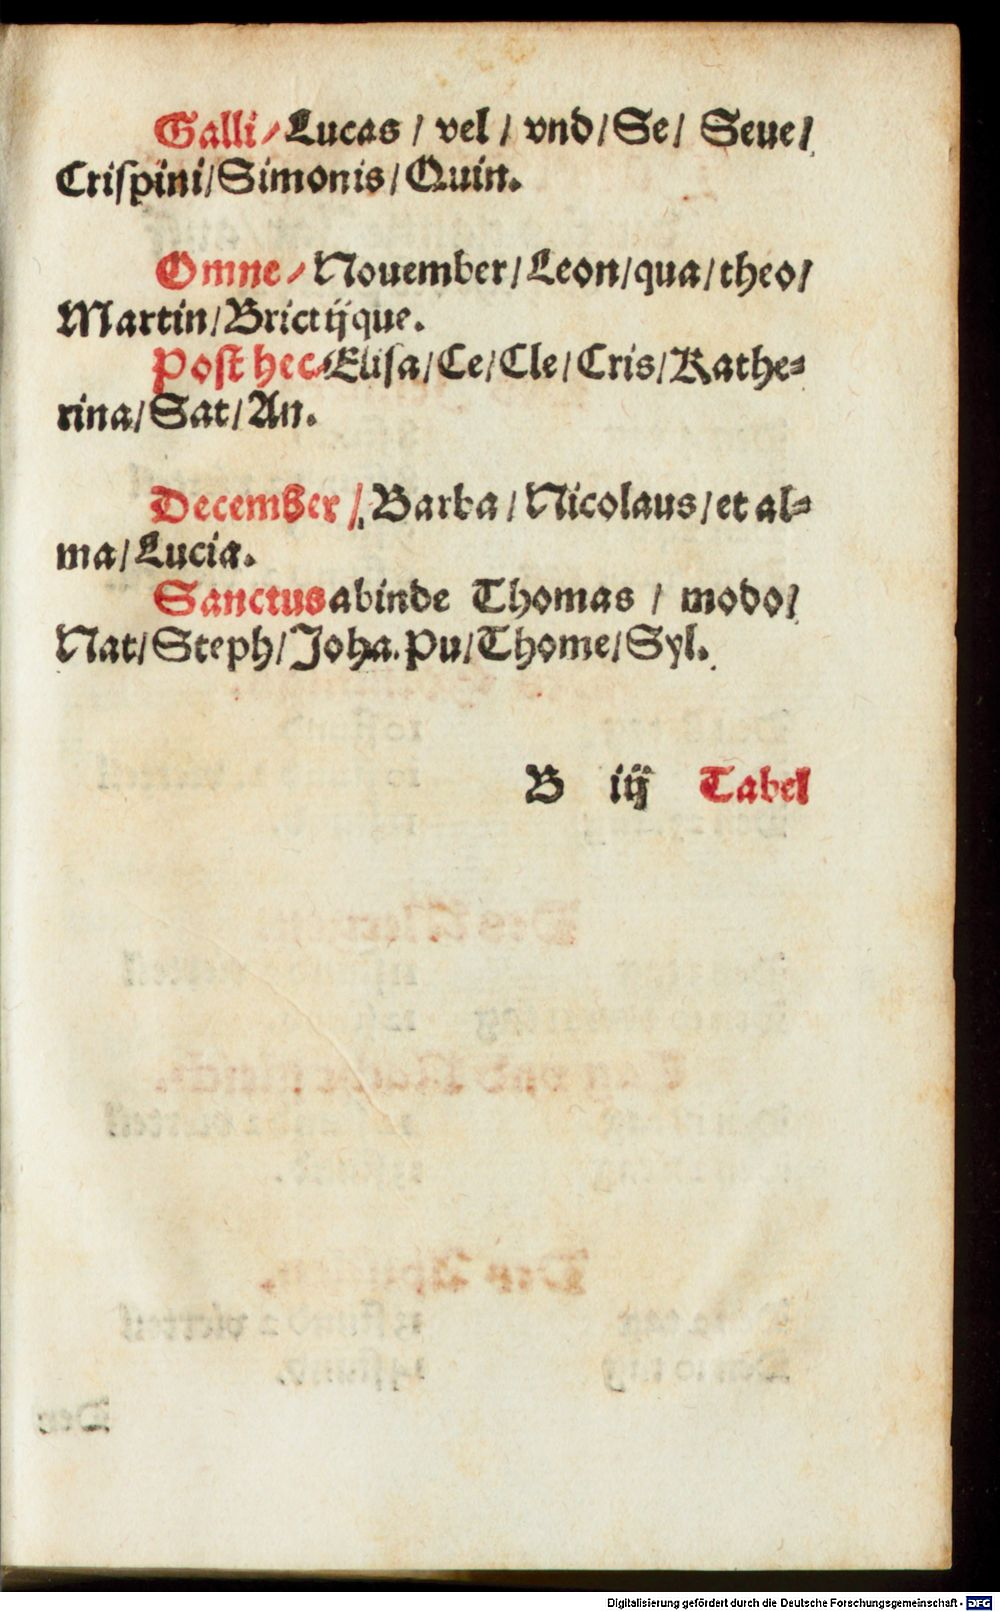 Galli/ Lucas / vel / vnd/ Se/ Seue/
Criſpini/ Simonis/ Quin.
Omne/ Nouember/ Leon/ qua/ theo/
Martin/ Brictijque.
Poſt hec/ Eliſa/ Ce/ Cle/ Cris/ Kathe⸗
rina/ Sat/ An.
December/ Barba/ Nicolaus/ et al⸗
ma/ Lucia.
Sanctus abinde Thomas / modo/
Nat/ Steph/ Joha. Pu/ Thome/ Syl.
B iij Tabel
Digitalisierung gefördert durch die Deutsche Forschungsgemeinschaft - DFG